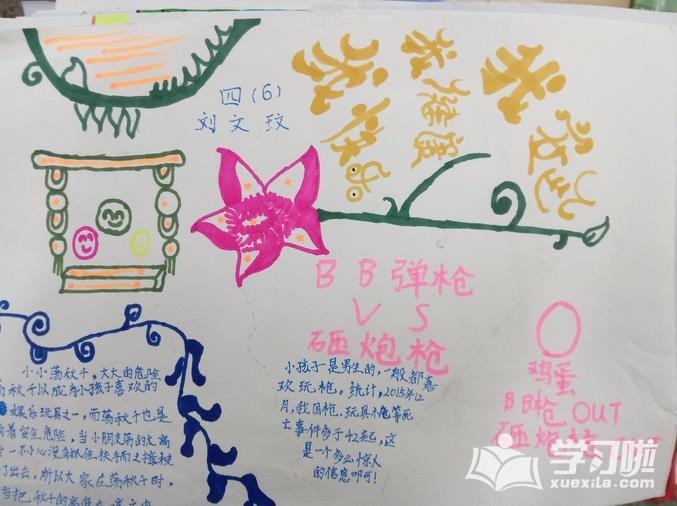 四(6)
刘文玟
我健康
我安全
我快乐
BB弹枪
VS
砸炮枪
小孩子是男生的,一般都喜
欢玩枪。统计,2015年12
月,我国枪、玩具不危等死
亡事件多于42起,这
是一个多么惊人
的信息叩可!
鸡蛋
BB枪 OUT
砸炮枪
小小荡秋千,大大的危险
荡秋千以成为小孩子喜欢的
娱乐玩具之一,而荡秋千也是
有着安全危险,当小朋友荡的太高
一不小心没有抓住扶手而又接被
打出去,所以大家在荡秋千时,
当把秋千的高度
学习啦
xuexila.com